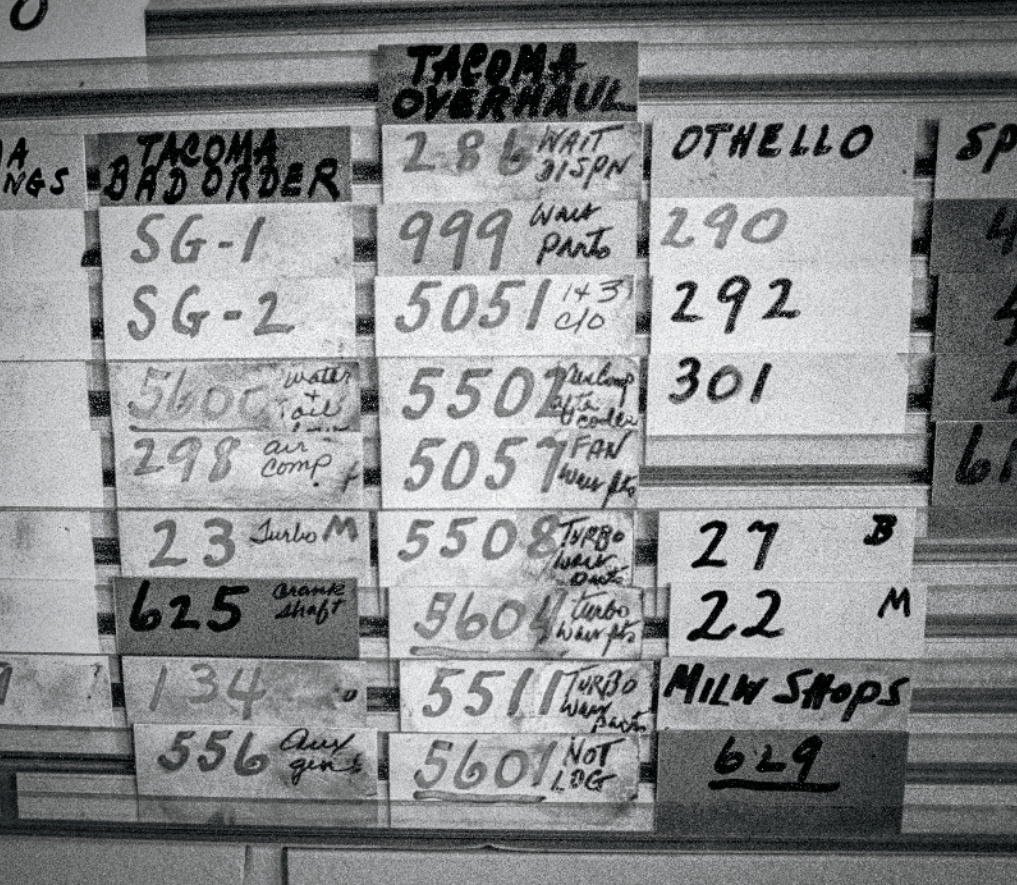 TACOMA
BAD ORDER
SG-1
SG-2
5600 water
+
oil
298 air
comp
23 Turbo M
625 crank
shaft
134
556 Aux
gen
TACOMA
OVERHAUL
286 WAIT
DISPN
999 Wait
parts
5051 1+3
c/o
5502 Air Comp
after
cooler
5057 FAN
Wait pts
5508 TURBO
Wait
parts
5604 turbo
Wait pts
5511 TURBO
Wait
parts
5601 NOT
LDG
OTHELLO
290
292
301
27 B
22 M
MILW SHOPS
629
A
NGS
SP
4
4
4
61